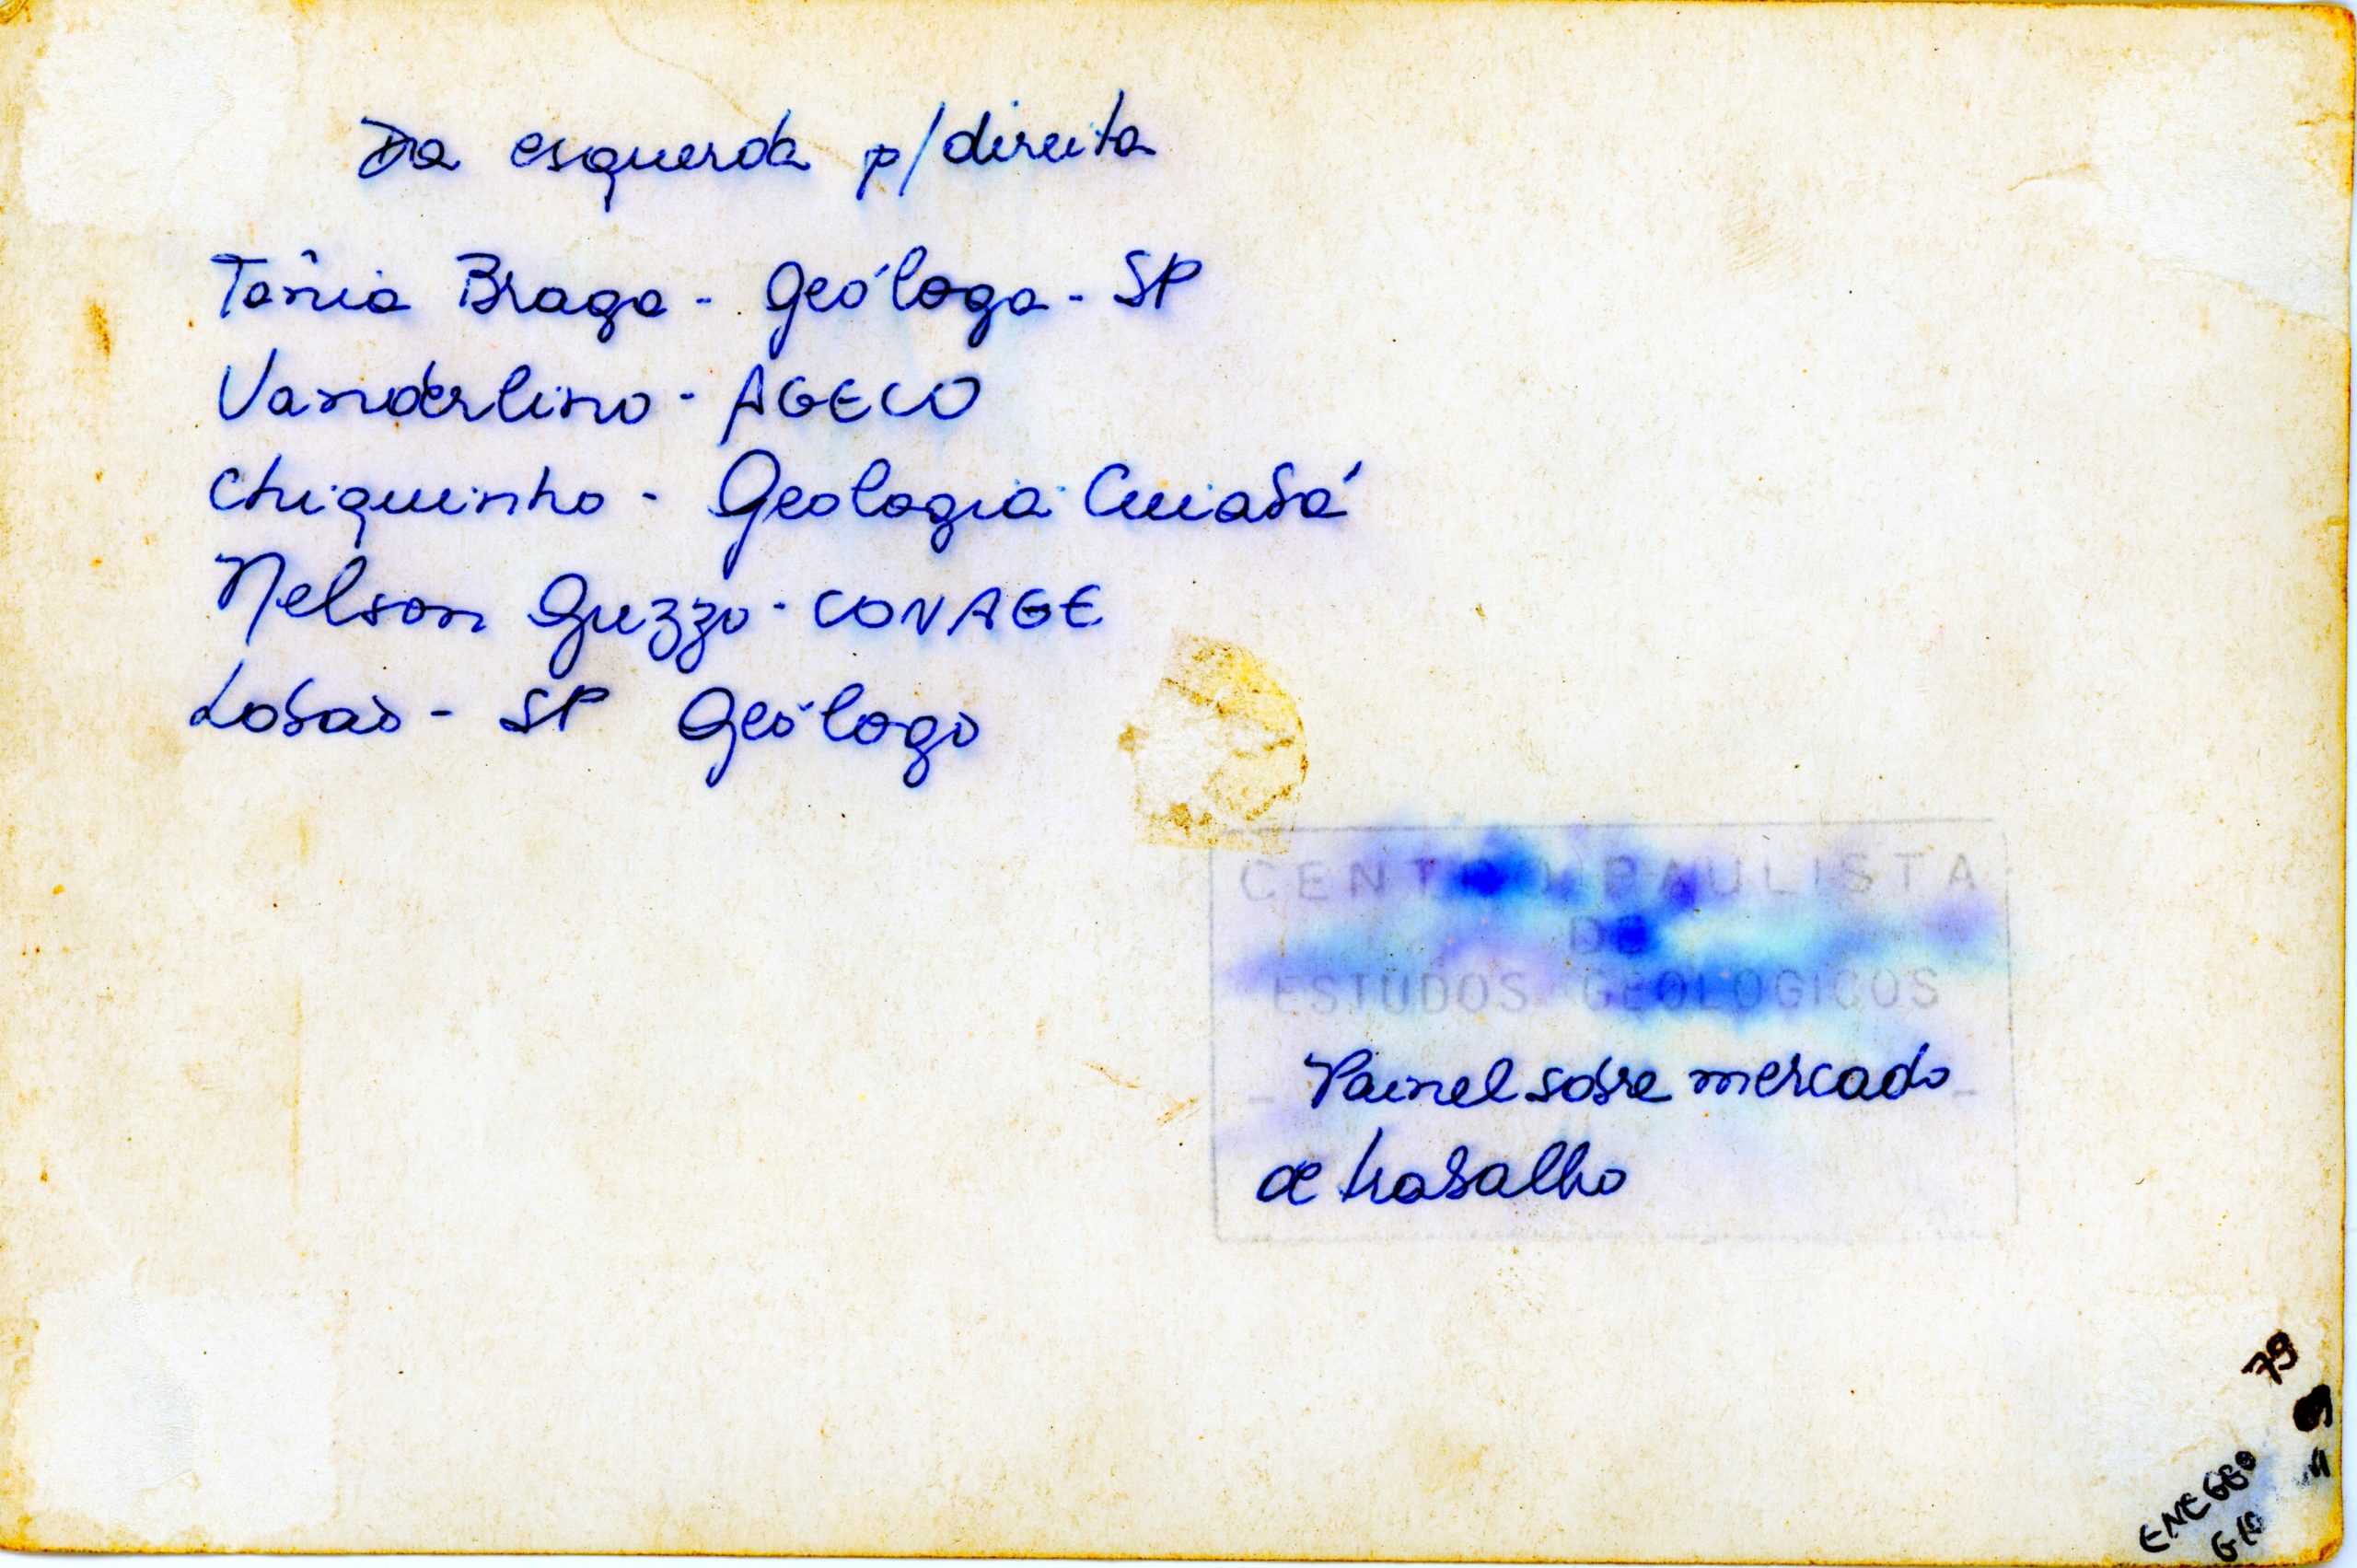 Da esquerda p/direita
Tânia Braga - Geóloga - SP
Vanderlino - AGECO
Chiquinho - Geologia Cuiabá
Nelson Guzzo - CONAGE
Lobão - SP Geólogo
CENTRO PAULISTA
DE
ESTUDOS GEOLOGICOS
Painel sobre mercado
de trabalho
79